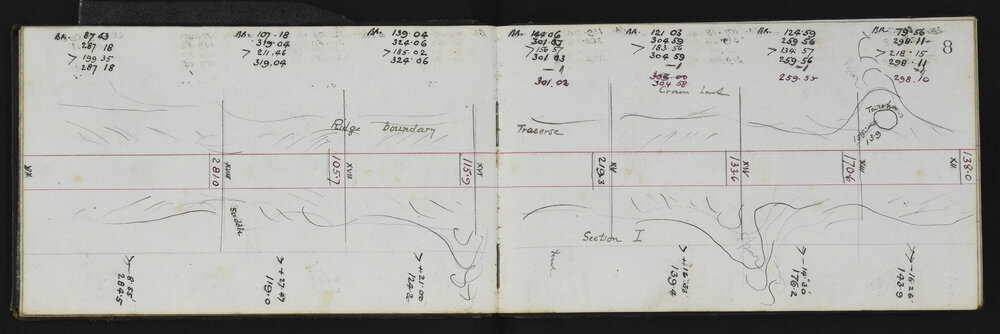 BK. 87 43
287 18
> 199 35
287 18
BK. 107.18
319.04
> 211.46
319.04
BK. 139 04
324.06
> 185.02
324 06
BK. 144 06
301.07
> 156 57
301 03
-1
301.02
BK. 121 03
304 59
> 183.56
304 59
-1
304 58
BK. 124.59
259 56
> 134.57
259.56
-1
259.55
BK. 79.56
298.11
> 218.15
298.11
-1
298.10
8
Crown Land
Ridge boundary
Traverse
159
XIX
281.0
XVIII
105.7
XVII
115.9
XVI
219.3
XV
133.6
XIV
170.6
XIII
138.0
XII
Saddle
Section I
Spur
> - 8.55
284.5
> + 27.47
119.0
> + 21.00
124.2
> + 16.55
139.4
> - 14.30
176.2
> - 16.26
143.9